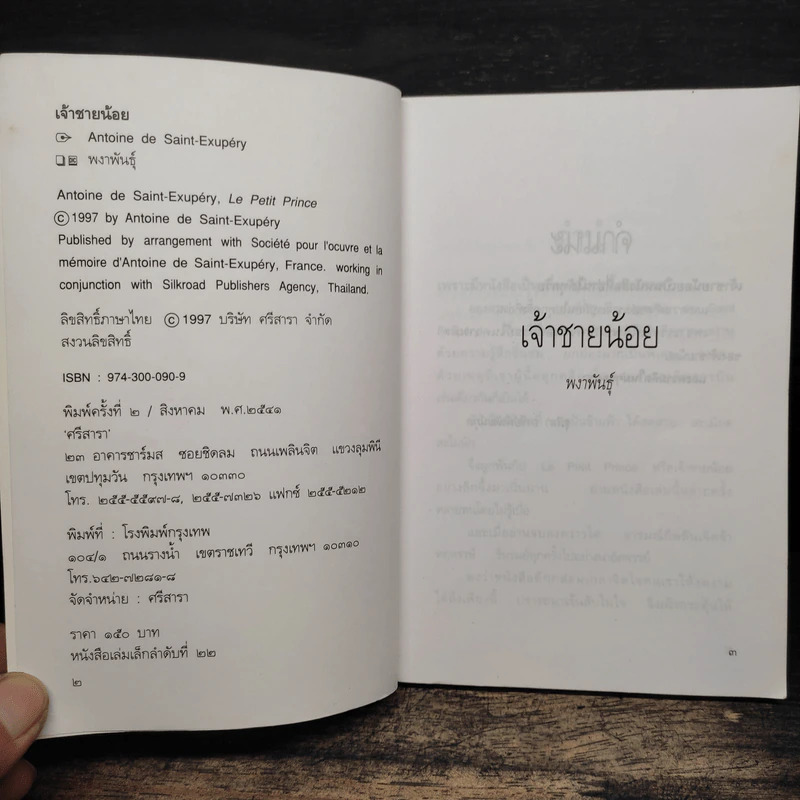 เจ้าชายน้อย
Antoine de Saint-Exupéry
พงาพันธุ์
Antoine de Saint-Exupéry, Le Petit Prince
©1997 by Antoine de Saint-Exupéry
Published by arrangement with Société pour l'ocuvre et la
mémoire d'Antoine de Saint-Exupéry, France. working in
conjunction with Silkroad Publishers Agency, Thailand.
ลิขสิทธิ์ภาษาไทย ©1997 บริษัท ศรีสารา จำกัด
สงวนลิขสิทธิ์
ISBN : 974-300-090-9
พิมพ์ครั้งที่ ๒ / สิงหาคม พ.ศ.๒๕๔๑
'ศรีสารา'
๒๓ อาคารชาร์มส ซอยชิดลม ถนนเพลินจิต แขวงลุมพินี
เขตปทุมวัน กรุงเทพฯ ๑๐๓๓๐
โทร. ๒๕๕-๕๕๙๗-๘, ๒๕๕-๗๓๒๖ แฟกซ์ ๒๕๕-๕๒๑๒
พิมพ์ที่ : โรงพิมพ์กรุงเทพ
๑๐๔/๑ ถนนรางน้ำ เขตราชเทวี กรุงเทพฯ ๑๐๓๑๐
โทร.๖๔๒-๗๒๘๑-๘
จัดจำหน่าย : ศรีสารา
ราคา ๑๕๐ บาท
หนังสือเล่มเล็กลำดับที่ ๒๒
๒
เจ้าชายน้อย
พงาพันธุ์
๓